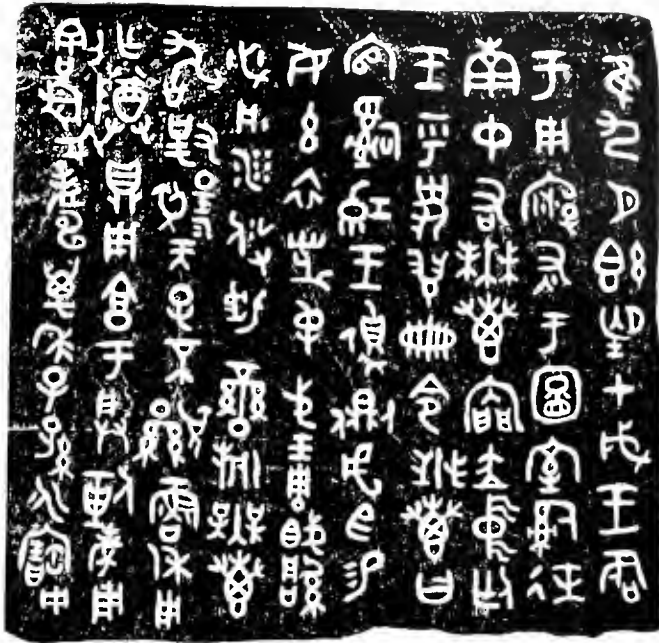 隹九月既望甲戌王各
于周廟灰于圖室𤔲徒
南中右無叀內門立中廷
王乎史翏冊令無叀曰
官𤔲紅王𠊱側虎臣易女
玄衣黹屯戈琱胾厚
必彤沙攸勒䜌旂無叀
敢對揚天子不顯魯休用
乍尊鼎用享于朕剌考用
割眉壽萬年子孫永寶用